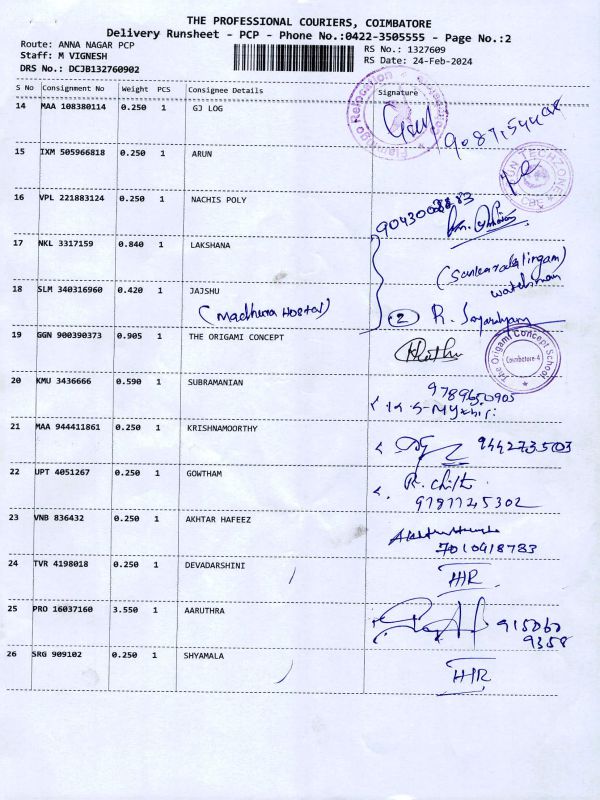 THE PROFESSIONAL COURIERS, COIMBATORE
Delivery Runsheet - PCP - Phone No.:0422-3505555 - Page No.:2
Route: ANNA NAGAR PCP RS No.: 1327609
Staff: M VIGNESH RS Date: 24-Feb-2024
DRS No.: DCJB132760902
S No Consignment No Weight PCS Consignee Details Signature
14 MAA 108380114 0.250 1 GJ LOG
Flamingo Relocation
15 IXM 505966818 0.250 1 ARUN
UN TECHZONE
CBE
16 VPL 221883124 0.250 1 NACHIS POLY
17 NKL 3317159 0.840 1 LAKSHANA
(Sankaralingam)
watchman
18 SLM 340316960 0.420 1 JAJSHU
(Madhura Hostal) 2 R.
19 GGN 900390373 0.905 1 THE ORIGAMI CONCEPT
The Origami Concept School
Coimbatore-4
20 KMU 3436666 0.590 1 SUBRAMANIAN
21 MAA 944411861 0.250 1 KRISHNAMOORTHY
944273503
22 UPT 4051267 0.250 1 GOWTHAM
9787745302
23 VNB 836432 0.250 1 AKHTAR HAFEEZ
7010918783
24 TVR 4198018 0.250 1 DEVADARSHINI
HR
25 PRO 16037160 3.550 1 AARUTHRA
915060
9358
26 SRG 909102 0.250 1 SHYAMALA
HR